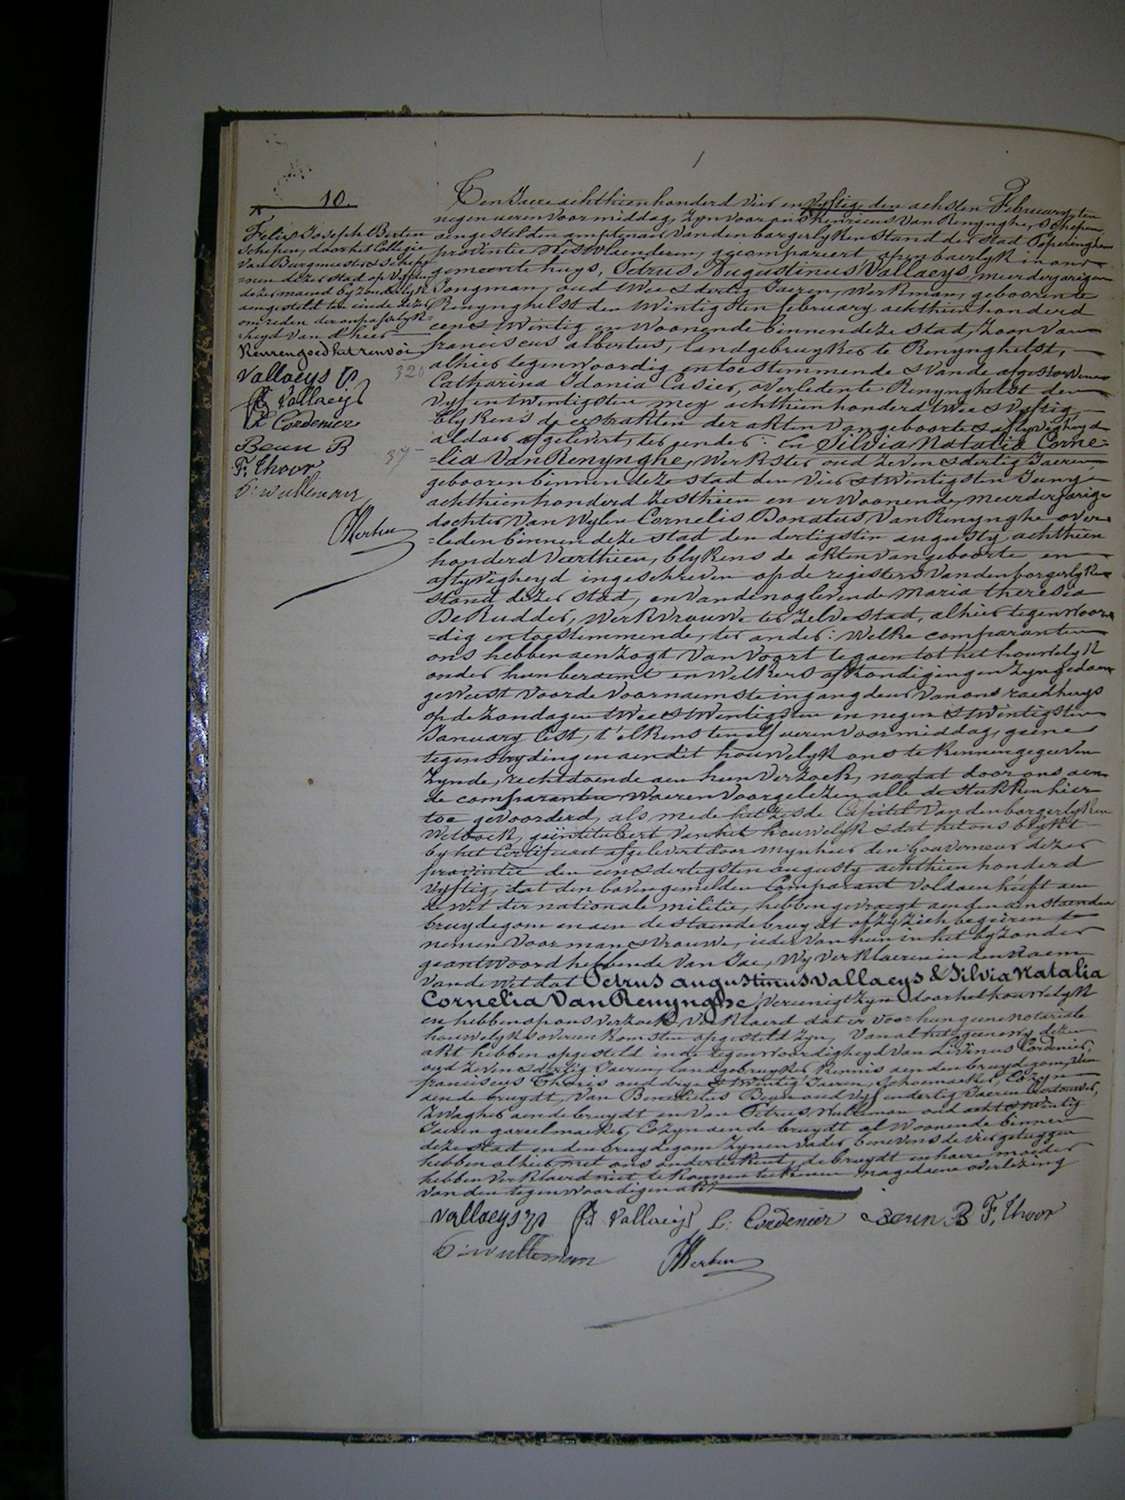 10.
Felix Joseph Berten
Schepen, door het Collegie
van Burgmeester & Schep=
=nen dezer stad op vyfden
dezer maend byzonderlyk
aengesteld ten einde dezer
om reden der onpasselyk=
heyd van d'heer
Keuren goed het renvoi
Vallaeys P.
F. A. Vallaeijs
L. Cordenier
Beun B
F. Thoor
P: Wulleman
F. Berten
Ten Jaere achthien honderd vier en vyftig, den achsten February, ten
negen ueren voormiddag, zyn voor ons Henricus Van Renynghe, Schepen,
aengestelden amptenaer van den borgerlyken stand der stad Poperinghe
provintie Westvlaenderen, gecompareert, openbaerlyk in ons
gemeentehuys, Petrus Augustinus Vallaeys, meerderjarigen
Jongman, oud twee & dertig Jaeren, werkman, geboren te
Renynghelst den twintigsten february achthien honderd
een & twintig en woonende binnen deze stad, zoon van
franciscus albertus, landgebruyker te Renynghelst,
alhier tegenwoordig en toestemmende & van de afgestorvene
Catharina Idonia Casier, overleden te Renynghelst den
vyf en twintigsten mey achthien honderd twee & vyftig,
blykens de extrakten der akten van geboorte & aflyvigheyd
aldaer afgelevert, ter eender: En Silvia Natalia Corne=
=lia Van Renynghe, werkster, oud zeven & dertig Jaeren,
geboren binnen deze stad den vier & twintigsten Juny
achthien honderd zesthien en er woonende, meerderjarige
dochter van wylen Cornelis Donatus Van Renynghe over=
=leden binnen deze stad den dertigsten augusty achthien
honderd veerthien, blykens de akten van geboorte en
aflyvigheyd ingeschreven op de registers van den borgerlyken
stand dezer stad, en van de noglevende Maria Theresia
De Rudder, werkvrouwe ter zelve stad, alhier tegenwoor=
=dig en toestemmende, ter ander: welke comparanten
ons hebben aenzogt van voort te gaen tot het houwelyk
onder hun beraemt en welkers afkondigingen zyn gedaen
geweest voor de voornaemste ingang deur van ons raedhuys
op de zondagen twee & twintigsten en negen & twintigsten
January lest, t'elkens ten elf ueren voormiddag, geene
tegenstrydingen aen dit houwelyk ons te kennen gegeven
zynde, rechtdoende aen hun verzoek, nadat door ons aen
de comparanten waeren voorgelezen alle de stukken hier
toe gevoorderd, als mede het zesde Capitel van den borgerlyken
Wetboek, geïntitulert van het houwelyk & dat het ons blykt
by het Certificaet afgelevert door mynheer den Gouverneur dezer
provintie den een & dertigsten augusty achthien honderd
vyftig, dat den bovengemelden Comparant voldaen heeft aen
de wet der nationale militie, hebben gevraegt aen den aenstaenden
bruydegom en aen de staende bruydt of zy zich begeiren te
nemen voor man & vrouwe, ieder van hun in het byzonder
geantwoord hebbende van Jae, wy verklaeren in den Naem
van de Wet dat Petrus Augustinus Vallaeys & Silvia Natalia
Cornelia Van Renynghe, vereenigt zyn door het houwelyk
en hebben op ons verzoek, verklaerd dat er voor hun geene notariale
houwelyksovereenkomsten opgesteld zyn, van al het geene wy dezen
akt hebben opgesteld in de tegenwoordigheyd van Livinus Cordenier,
oud zeven & dertig Jaeren, landgebruyker, kennis aen den bruydegom, van
franciscus Thoor oud drye & twintig Jaeren, Schoenmaeker, Cozyn
aen de bruydt, van Benedictus Beun oud vyf en dertig Jaeren,
zwagher aen de bruydt en van Petrus Wulleman oud acht & twintig
Jaeren gareelmaeker, Cozyn aen de bruydt al woonende binnen
deze stad en den bruydegom zynen vader benevens de vier getuygen
hebben alhier met ons onderteekent, de bruydt en haere moeder
hebben verklaerd niet te konnen teekenen nagedaene overlezing
van den tegenwoordigen akt
Vallaeys P. F. A. Vallaeijs L. Cordenier Beun B F. Thoor
P: Wulleman F. Berten